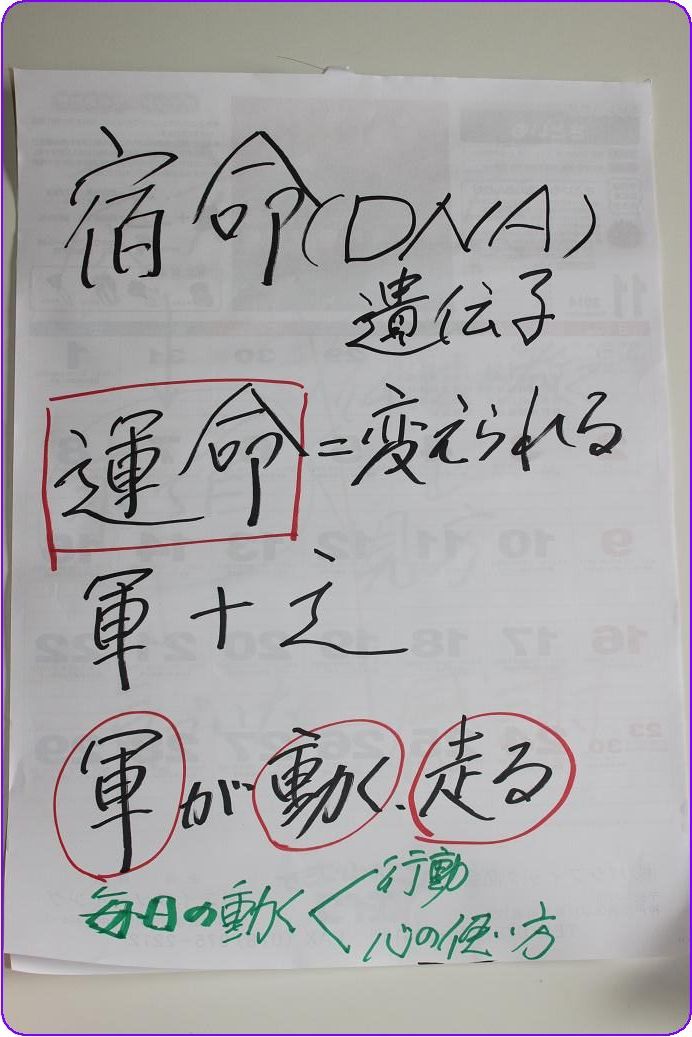 宿命(DNA)
遺伝子
運命=変えられる
軍+辶
軍が動く、走る
毎日の動く<行動
心の使い方